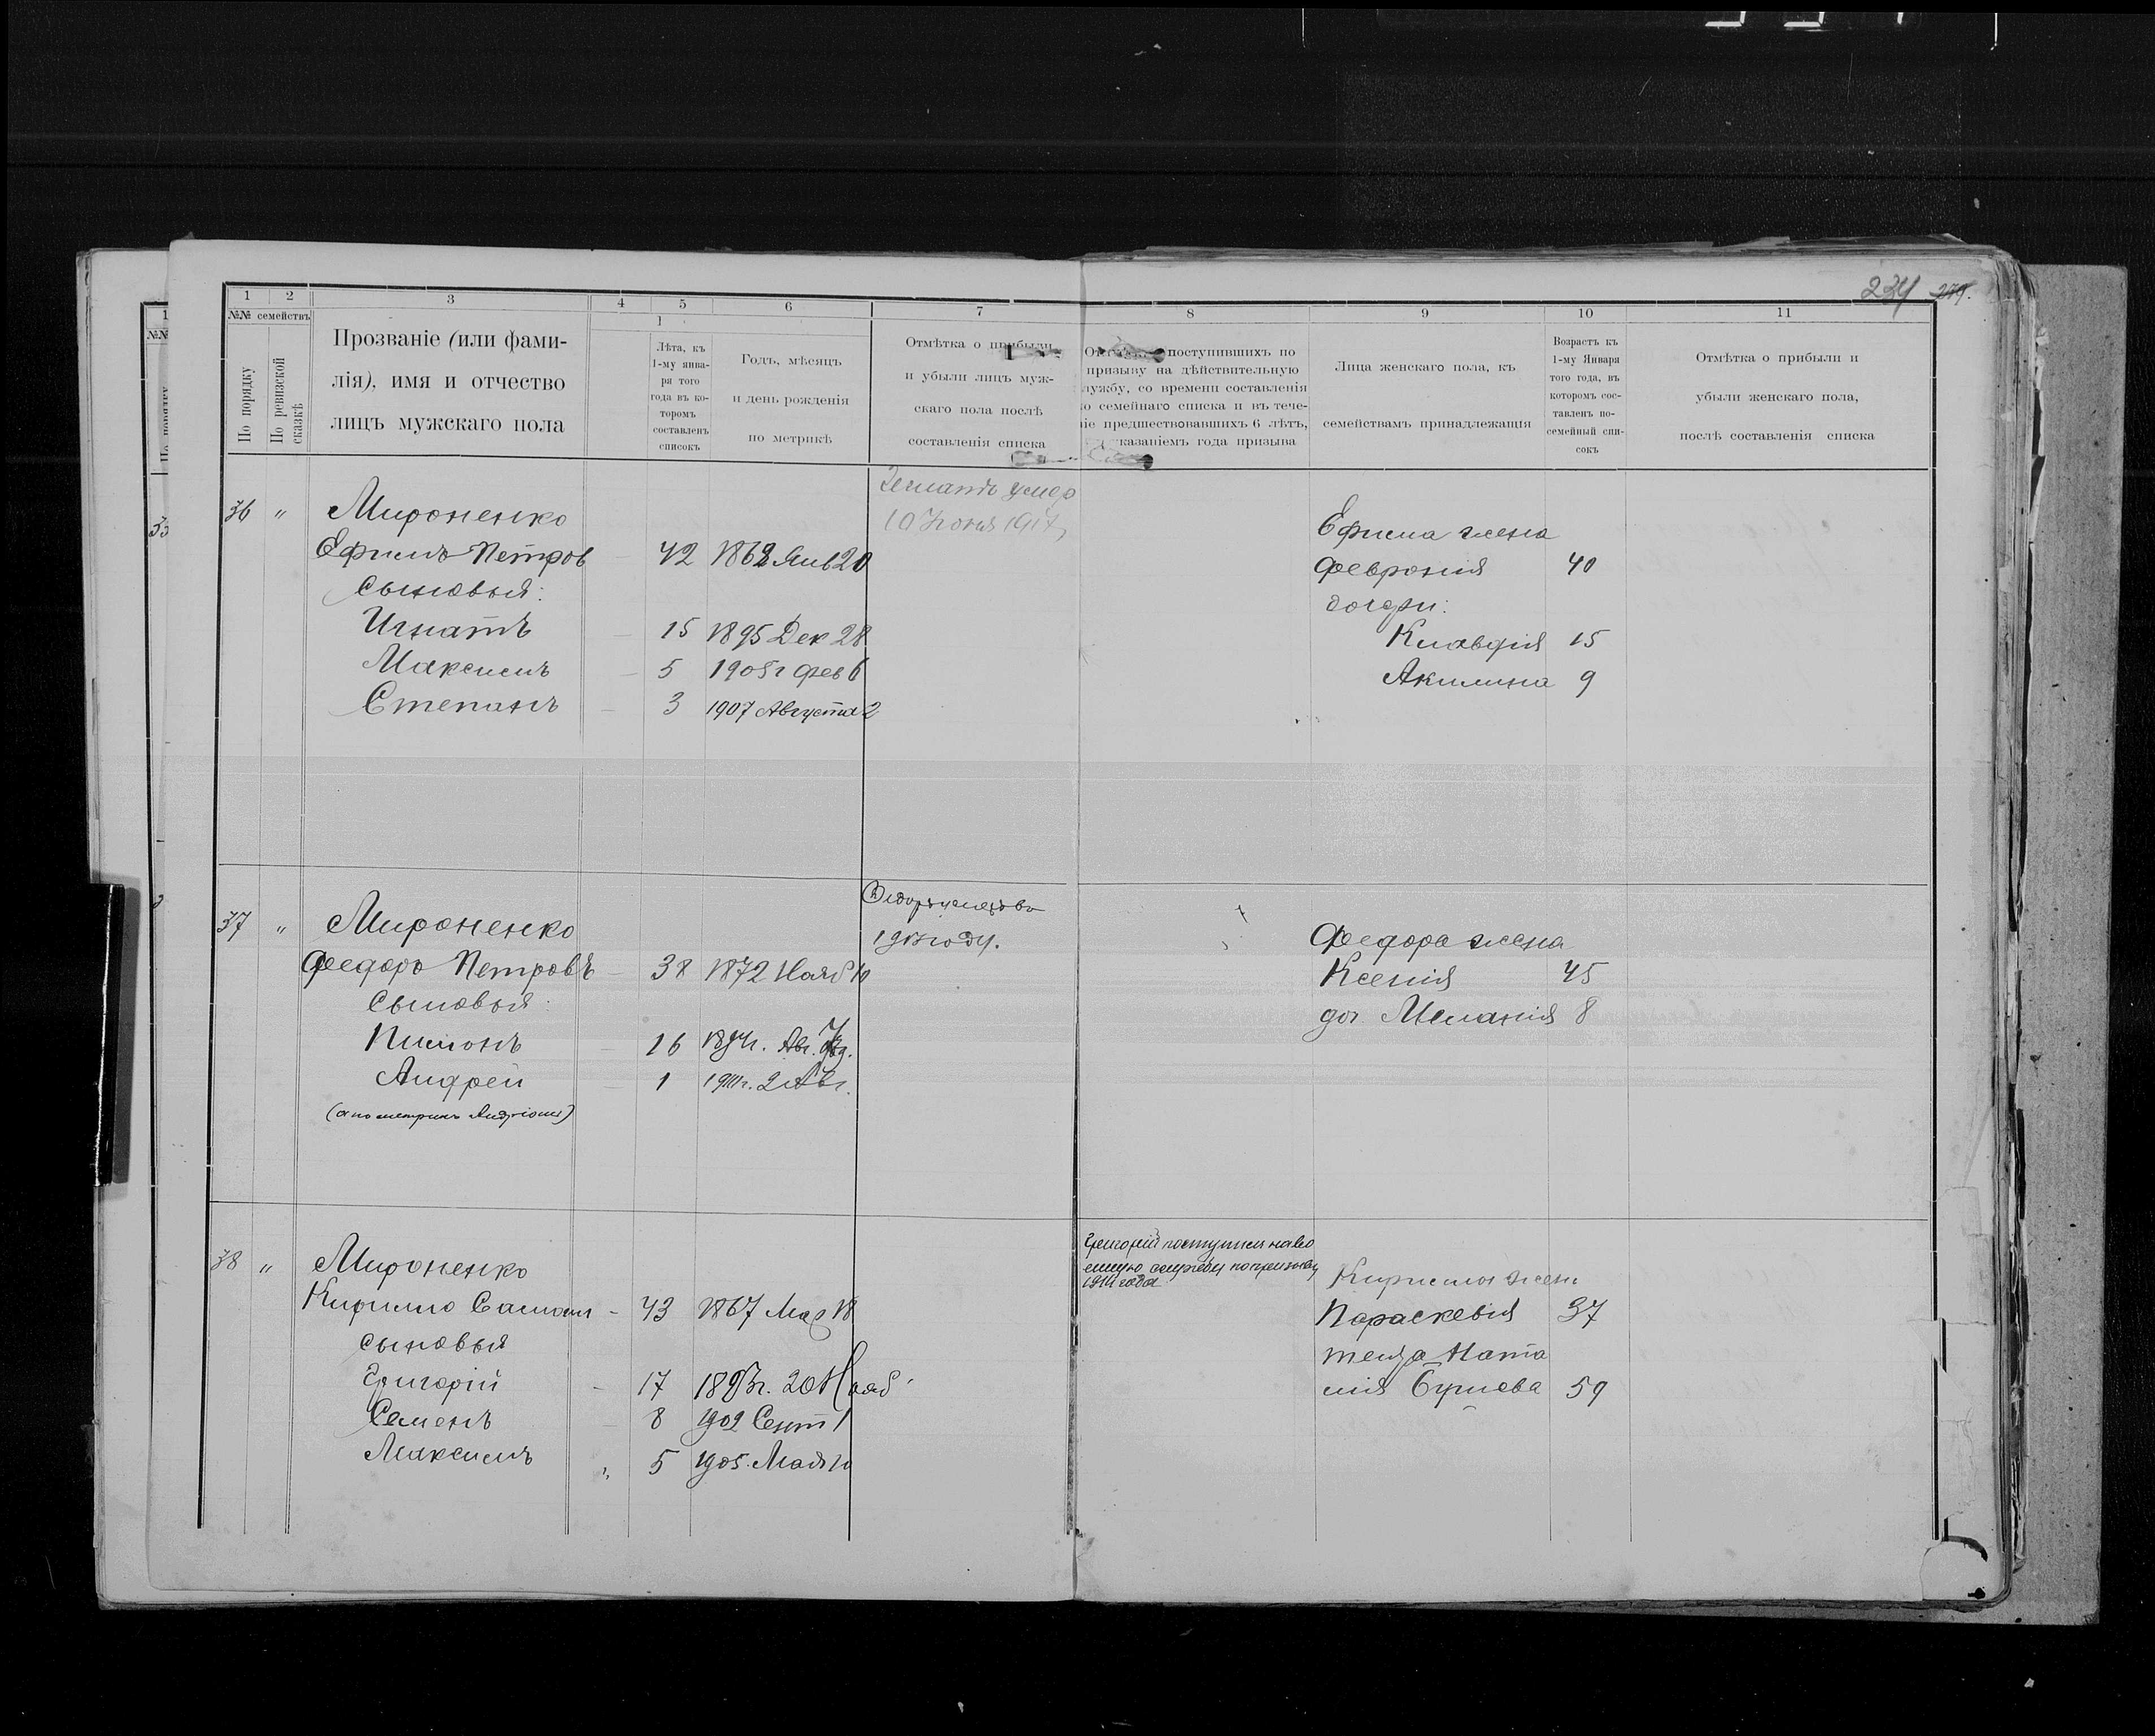 234 279.
1 2 3 4 5 6 7 8 9 10 11
№№ семействъ
По порядку
По ревизской сказкѣ
Прозваніе (или фами-
лія), имя и отчество
лицъ мужскаго пола
Лѣта, къ
1-му янва-
ря того
года въ ко-
торомъ
составленъ
списокъ
Годъ, мѣсяцъ
и день рожденія
по метрикѣ
Отмѣтка о прибыли
и убыли лицъ муж-
скаго пола послѣ
составленія списка
поступившихъ по
призыву на дѣйствительную
лужбу, со времени составленія
о семейнаго списка и въ тече-
іе предшествовавшихъ 6 лѣтъ,
казаніемъ года призыва
Лица женскаго пола, къ
семействамъ принадлежащія
Возрастъ къ
1-му Января
того года, въ
которомъ сос-
тавленъ по-
семейный спи-
сокъ
Отмѣтка о прибыли и
убыли женскаго пола,
послѣ составленія списка
36 " Мироненко
Ефимъ Петров 42 1868 Янв 20
сыновья:
Игнатъ 15 1895 Дек 28
Максимъ 5 1905 г фев 6
Степанъ 3 1907 Августа 2
Игнатъ умер
10 Іюня 1917
Ефима жена
Феврония 40
дочери:
Клавдія 15
Акилина 9
37 " Мироненко
Федоръ Петровъ 38 1872 Нояб 10
сыновья:
Пимонъ 16 1894 г. Авг.
Андрей 1 1911 г. 2 Авг.
(а по метрикѣ)
году.
Федора жена
Ксенія 45
доч Меланія 8
38 " Мироненко
Кирилло 43 1867 Мар 18
сыновья
Григорій 17 1893 г. 20 Нояб
Семенъ 8 1902 Сент 1
Максимъ " 5 1905. Мая 10
Григорій поступилъ на во
енную службу по призыву
1914 года
Кирилла жена
Параскевія 37
теща Ната
лія 59